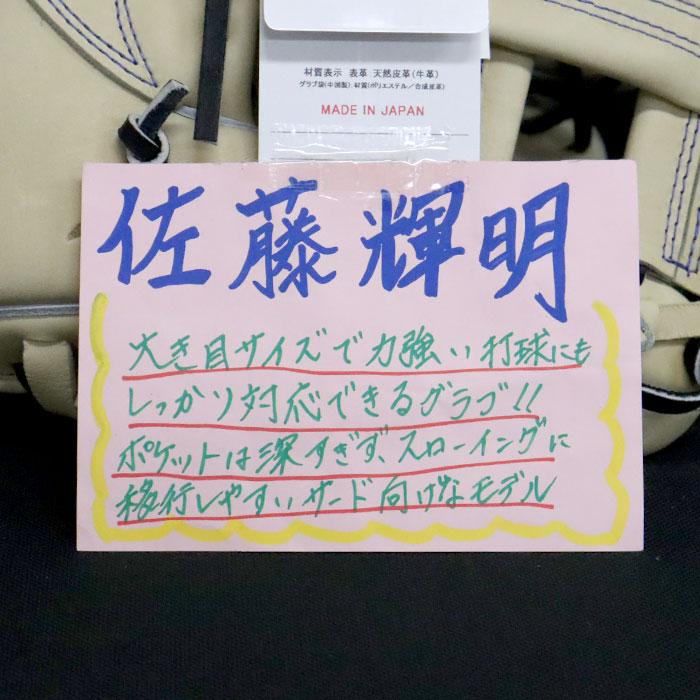 材質表示 表革 天然皮革(牛革)
グラブ袋(中国製):材質(ポリエステル/合成皮革)
MADE IN JAPAN
佐藤輝明
大き目サイズで力強い打球にも
しっかり対応できるグラブ!!
ポケットは深すぎず、スローイングに
移行しやすいサード向けなモデル